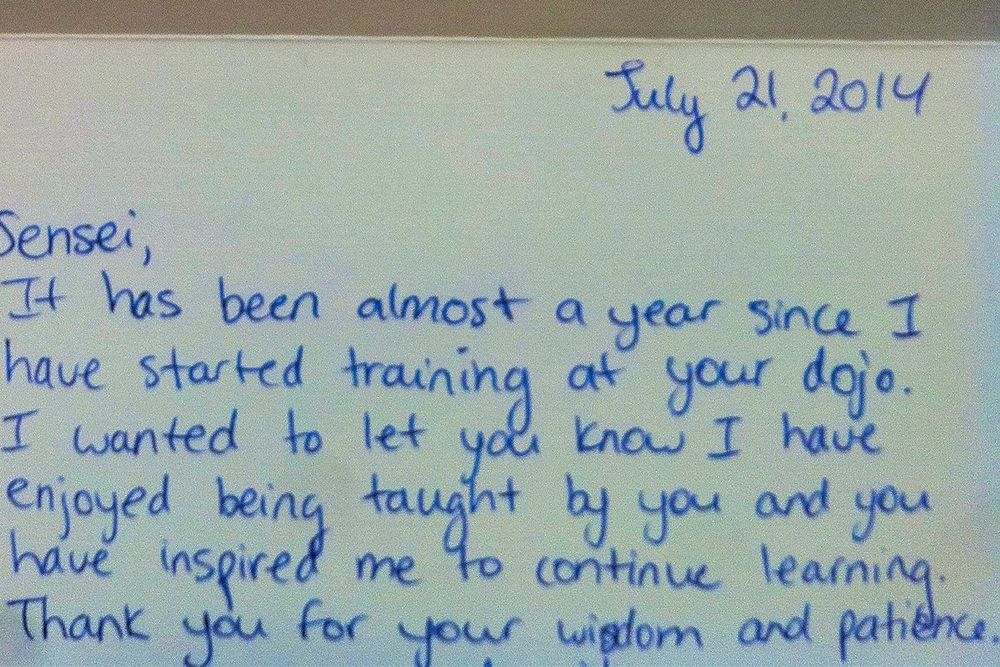 July 21, 2014
Sensei,
It has been almost a year since I
have started training at your dojo.
I wanted to let you know I have
enjoyed being taught by you and you
have inspired me to continue learning.
Thank you for your wisdom and patience.